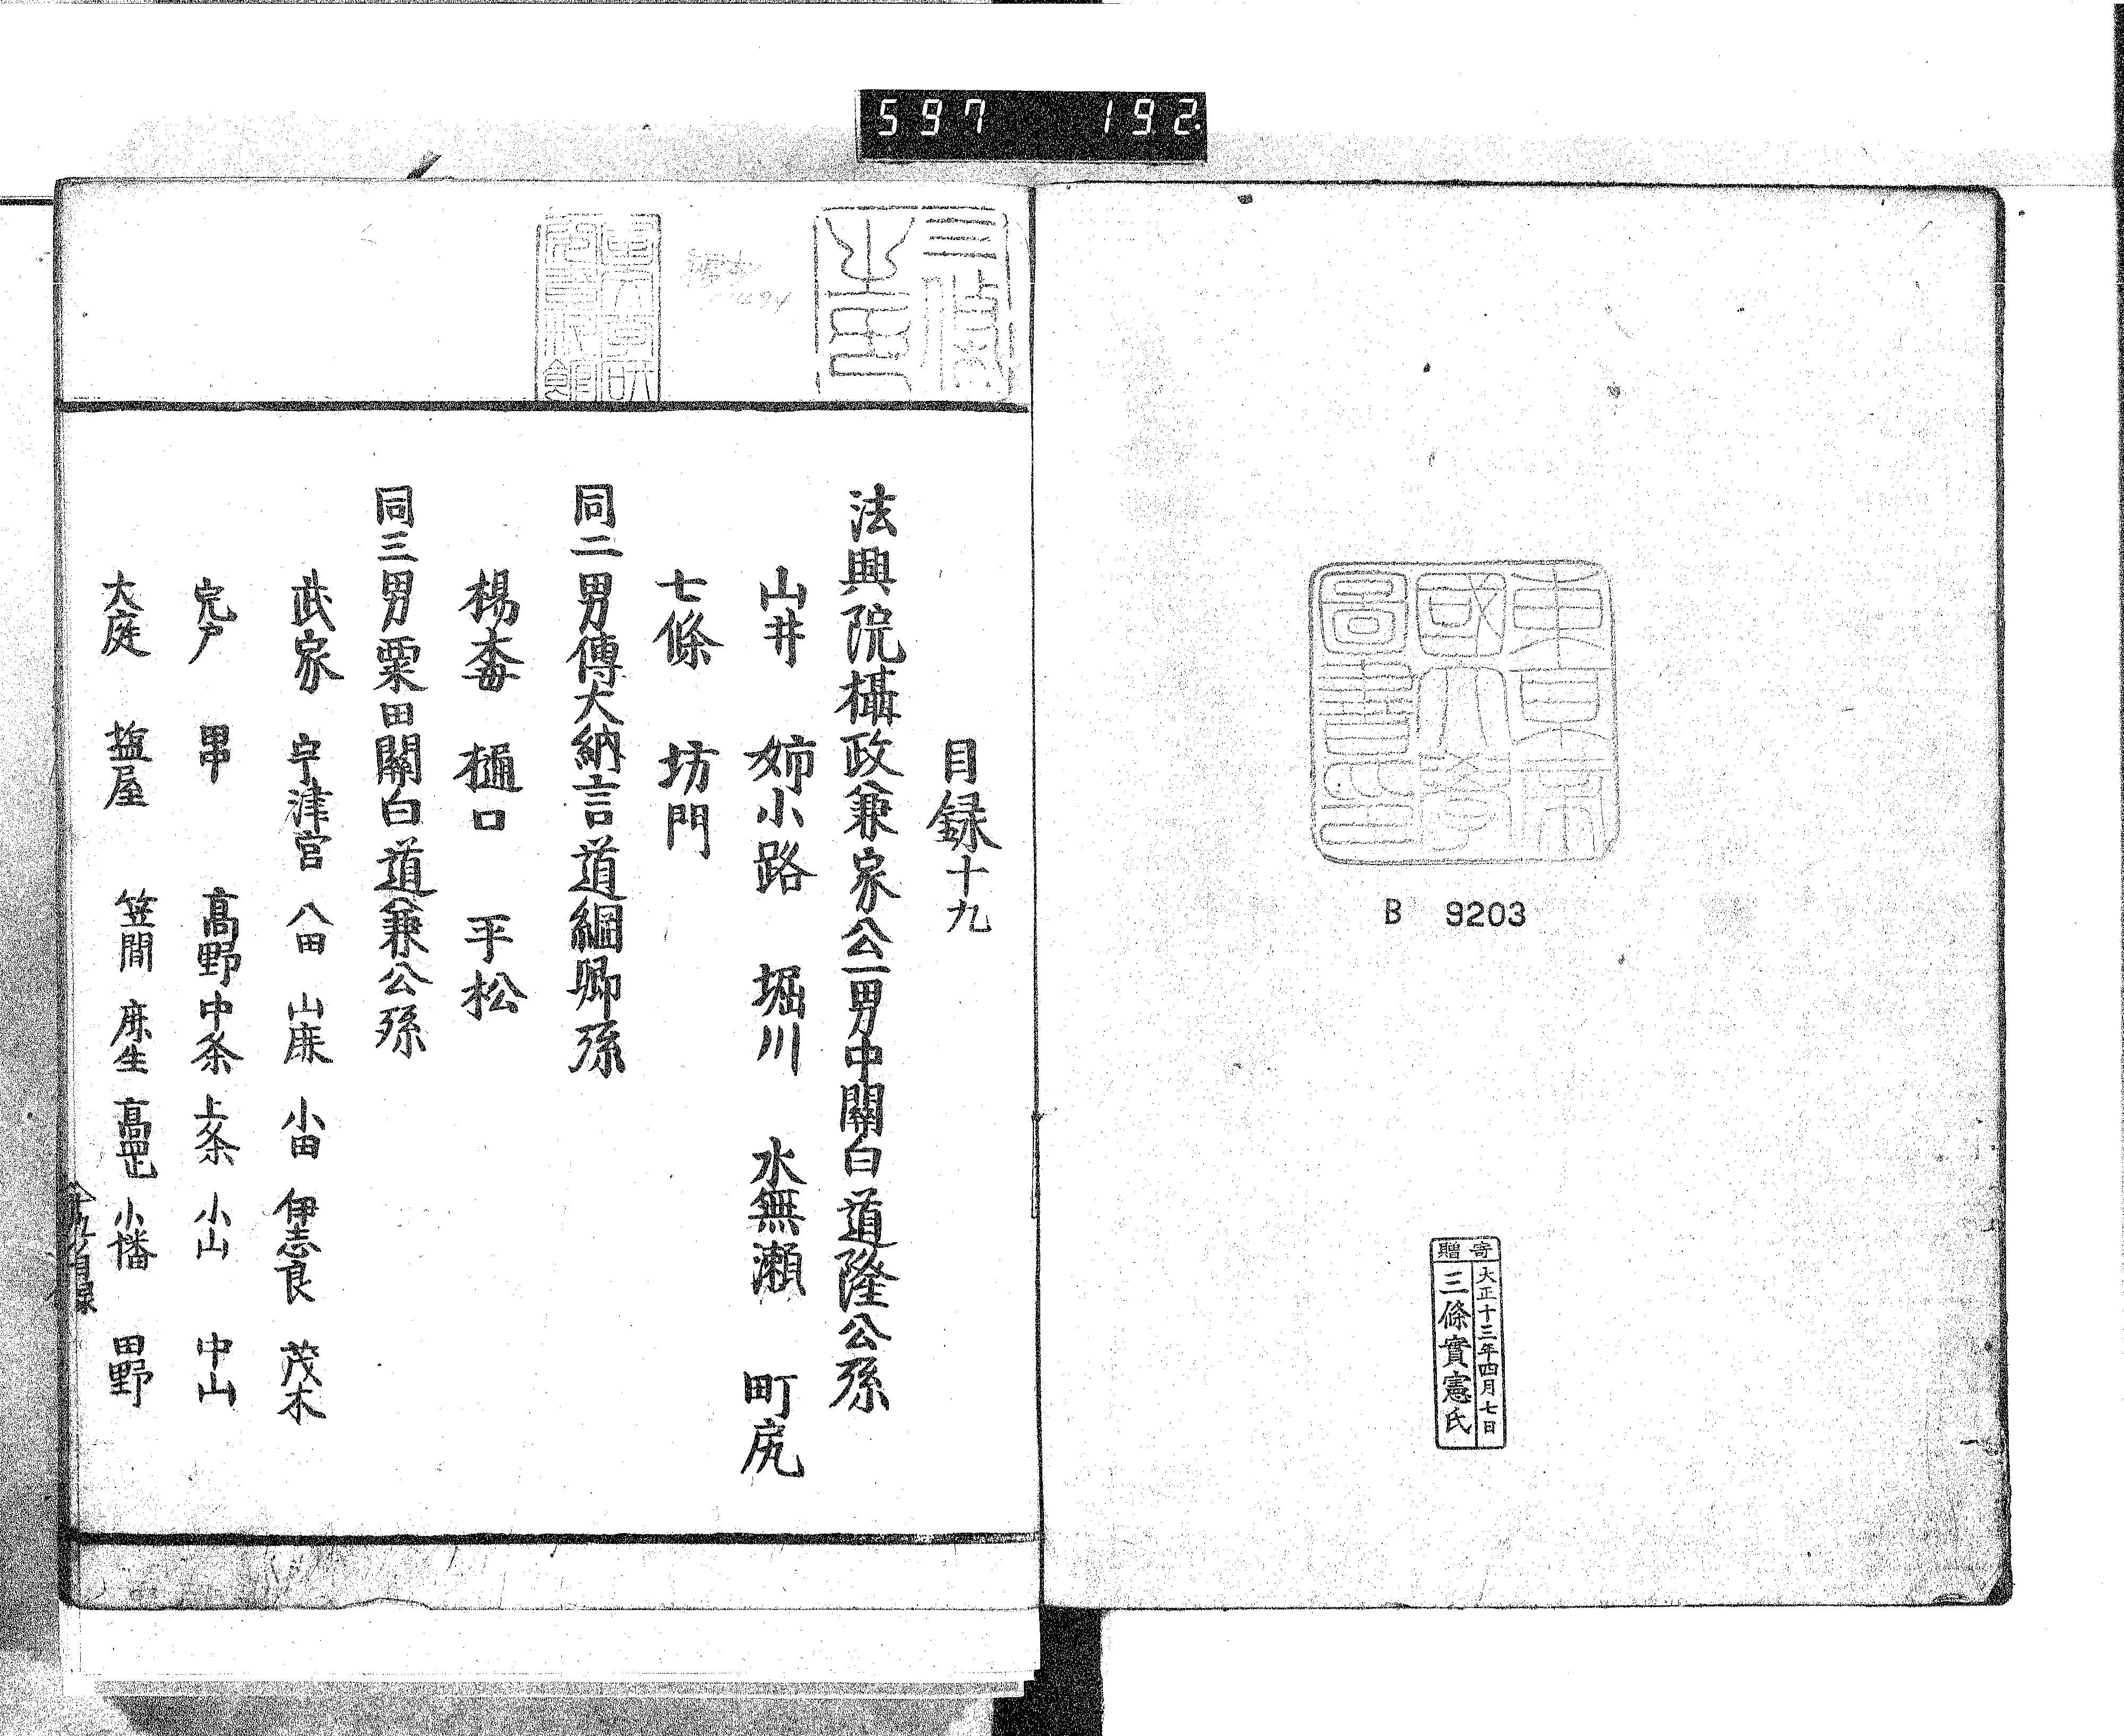 597 192
東京帝
國大學
圖書印
B 9203
寄贈
大正十三年四月七日
三條實憲氏
三條
之印
目録十九
法興院攝政兼家公一男中關白道隆公孫
山井 姉小路 堀川 水無瀬 町尻
七條 坊門
同二男傳大納言道綱卿孫
楊梅 樋口 平松
同三男粟田關白道兼公孫
武家 宇津宮 八田 山鹿 小田 伊志良 茂木
宍戸 髙野 中条 上条 小山 中山
大庭 塩屋 笠間 麻生 小幡 田野